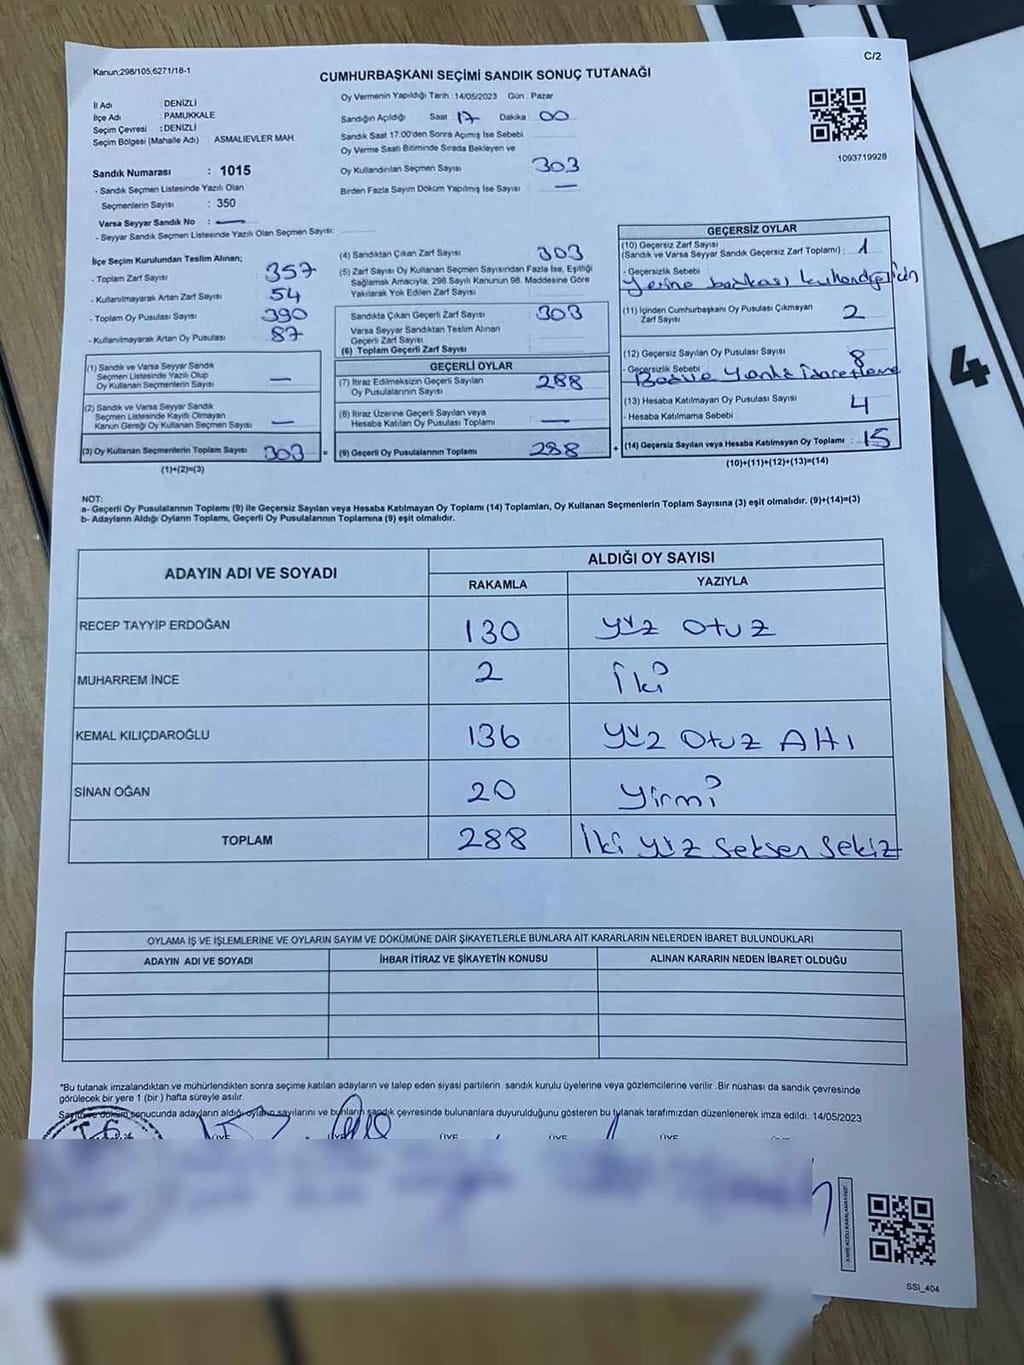 Kanun;298/105,6271/18-1
C/2
CUMHURBAŞKANI SEÇİMİ SANDIK SONUÇ TUTANAĞI
İl Adı : DENİZLİ
İlçe Adı : PAMUKKALE
Seçim Çevresi : DENİZLİ
Seçim Bölgesi (Mahalle Adı) ASMALIEVLER MAH
Sandık Numarası : 1015
- Sandık Seçmen Listesinde Yazılı Olan
Seçmenlerin Sayısı : 350
Varsa Seyyar Sandık No : —
- Seyyar Sandık Seçmen Listesinde Yazılı Olan Seçmen Sayısı:
Oy Vermenin Yapıldığı Tarih :14/05/2023 Gün : Pazar
Sandığın Açıldığı Saat 17 Dakika 00
Sandık Saat 17:00'den Sonra Açımış İse Sebebi
Oy Verme Saati Bitiminde Sırada Bekleyen ve
Oy Kullandırılan Seçmen Sayısı 303
Birden Fazla Sayım Döküm Yapılmış İse Sayısı —
1093719928
İlçe Seçim Kurulundan Teslim Alınan;
- Toplam Zarf Sayısı 357
- Kullanılmayarak Artan Zarf Sayısı 54
- Toplam Oy Pusulası Sayısı 390
- Kullanılmayarak Artan Oy Pusulası 87
(1) Sandık ve Varsa Seyyar Sandık
Seçmen Listesinde Yazılı Olup
Oy Kullanan Seçmenlerin Sayısı —
(2) Sandık ve Varsa Seyyar Sandık
Seçmen Listesinde Kayıtlı Olmayan
Kanun Gereği Oy Kullanan Seçmen Sayısı —
(3) Oy Kullanan Seçmenlerin Toplam Sayısı 303 =
(1)+(2)=(3)
(4) Sandıktan Çıkan Zarf Sayısı 303
(5) Zarf Sayısı Oy Kullanan Seçmen Sayısından Fazla İse, Eşitliği
Sağlamak Amacıyla; 298 Sayılı Kanunun 98. Maddesine Göre
Yakılarak Yok Edilen Zarf Sayısı
Sandıkta Çıkan Geçerli Zarf Sayısı 303
Varsa Seyyar Sandıktan Teslim Alınan
Geçerli Zarf Sayısı
(6) Toplam Geçerli Zarf Sayısı
GEÇERLİ OYLAR
(7) İtiraz Edilmeksizin Geçerli Sayılan
Oy Pusulalarının Sayısı 288
(8) İtiraz Üzerine Geçerli Sayılan veya
Hesaba Katılan Oy Pusulası Toplamı —
(9) Geçerli Oy Pusulalarının Toplamı 288 +
GEÇERSİZ OYLAR
(10) Geçersiz Zarf Sayısı
(Sandık ve Varsa Seyyar Sandık Geçersiz Zarf Toplamı) : 1
- Geçersizlik Sebebi
Yerine başkası kullandığı için
(11) İçinden Cumhurbaşkanı Oy Pusulası Çıkmayan
Zarf Sayısı 2
(12) Geçersiz Sayılan Oy Pusulası Sayısı 8
- Geçersizlik Sebebi
(13) Hesaba Katılmayan Oy Pusulası Sayısı 4
- Hesaba Katılmama Sebebi
(14) Geçersiz Sayılan veya Hesaba Katılmayan Oy Toplamı : 15
(10)+(11)+(12)+(13)=(14)
NOT:
a- Geçerli Oy Pusulalarının Toplamı (9) ile Geçersiz Sayılan veya Hesaba Katılmayan Oy Toplamı (14) Toplamları, Oy Kullanan Seçmenlerin Toplam Sayısına (3) eşit olmalıdır. (9)+(14)=(3)
b- Adayların Aldığı Oyların Toplamı, Geçerli Oy Pusulalarının Toplamına (9) eşit olmalıdır.
ADAYIN ADI VE SOYADI ALDIĞI OY SAYISI
RAKAMLA YAZIYLA
RECEP TAYYİP ERDOĞAN 130 yüz otuz
MUHARREM İNCE 2 İki
KEMAL KILIÇDAROĞLU 136 yüz otuz Altı
SİNAN OĞAN 20 Yirmi
TOPLAM 288 İki yüz seksen sekiz
OYLAMA İŞ VE İŞLEMLERİNE VE OYLARIN SAYIM VE DÖKÜMÜNE DAİR ŞİKAYETLERLE BUNLARA AİT KARARLARIN NELERDEN İBARET BULUNDUKLARI
ADAYIN ADI VE SOYADI İHBAR İTİRAZ VE ŞİKAYETİN KONUSU ALINAN KARARIN NEDEN İBARET OLDUĞU
*Bu tutanak imzalandıktan ve mühürlendikten sonra seçime katılan adayların ve talep eden siyasi partilerin sandık kurulu üyelerine veya gözlemcilerine verilir .Bir nüshası da sandık çevresinde
görülecek bir yere 1 (bir ) hafta süreyle asılır.
Sayım ve döküm sonucunda adayların aldığı oyların sayılarını ve bunların sandık çevresinde bulunanlara duyurulduğunu gösteren bu tutanak tarafımızdan düzenlenerek imza edildi. 14/05/2023
ÜYE ÜYE ÜYE ÜYE
SSİ_404
4